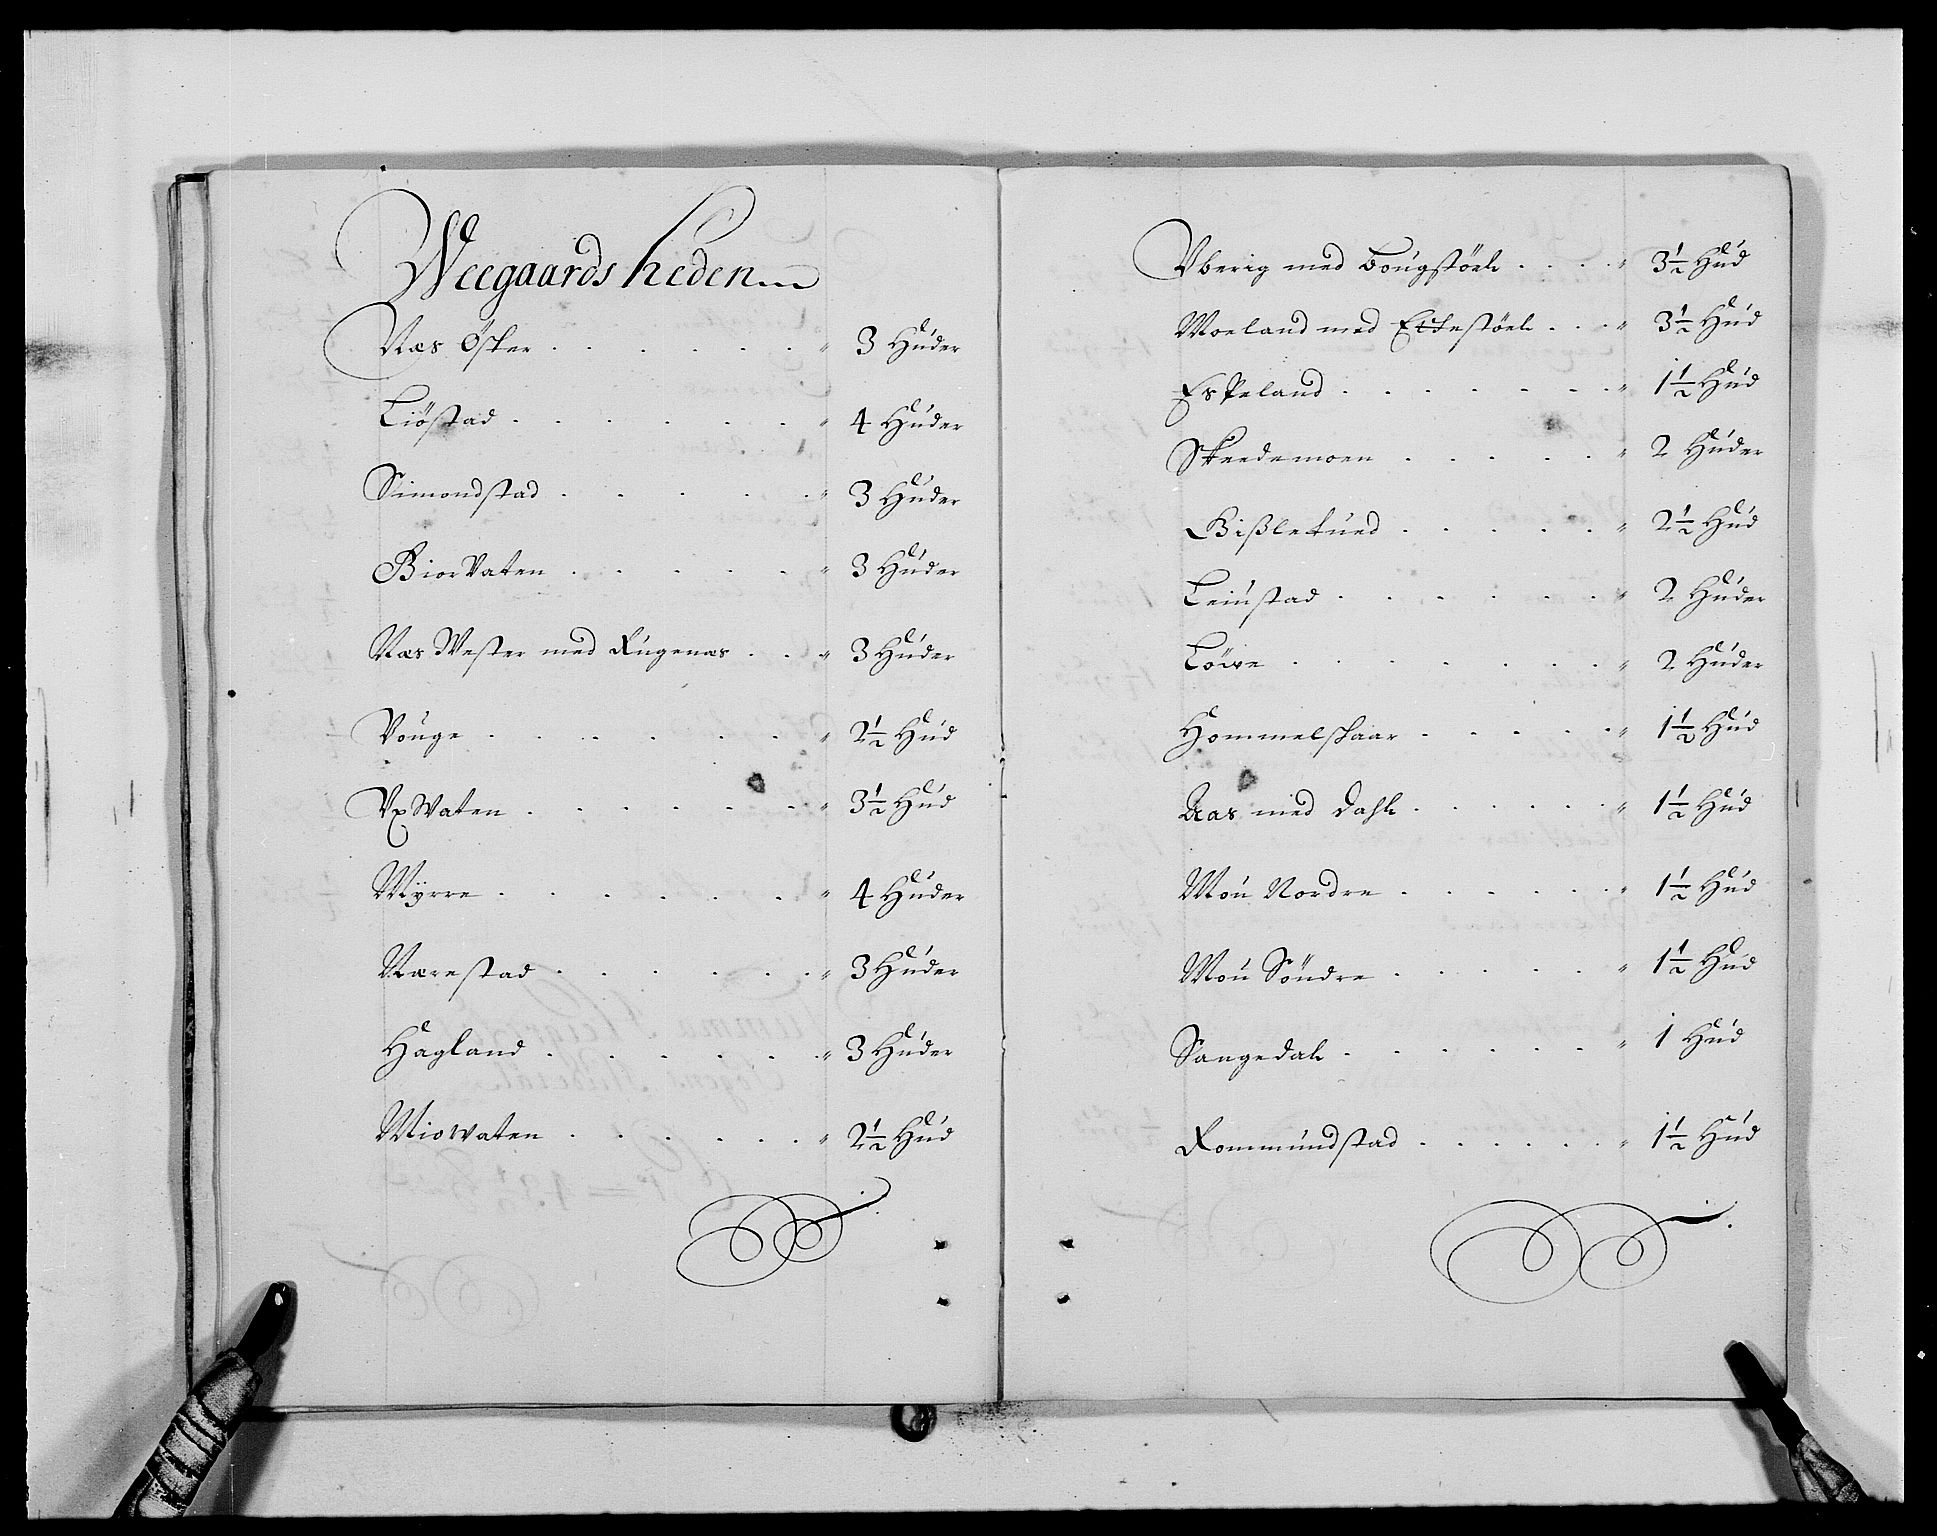 Weegaards heden
Næs Øster . . . . . . " 3 Huder
Liöstad . . . . . . " 4 Huder
Simondstad . . . . . " 3 Huder
BiorVaten . . . . . " 3 Huder
Næs Wester med Rugenæs . . " 3 Huder
Vouge . . . . . . " 2½ Hud
VxWaten . . . . . . " 3½ Hud
Myrre . . . . . . " 4 Huder
Narestad . . . . . " 3 Huder
Hagland . . . . . . " 3 Huder
Miowaten . . . . . " 2½ Hud
Vberig med Bougstöel . . . " 3½ Hud
Moeland med Ettestöel . . " 3½ Hud
Espeland . . . . . . " 1½ Hud
Skeedemoen . . . . . " 2 Huder
Bißletued . . . . . " 2½ Hud
Leiustad . . . . . . " 2 Huder
Löwe . . . . . . " 2 Huder
Hommelskaar . . . . . " 1½ Hud
Aas med Dahl . . . . . " 1½ Hud
Mou Nordre . . . . . " 1½ Hud
Mou Söndre . . . . . " 1½ Hud
Sangedal . . . . . . " 1 Hud
Rommundstad . . . . . " 1½ Hud